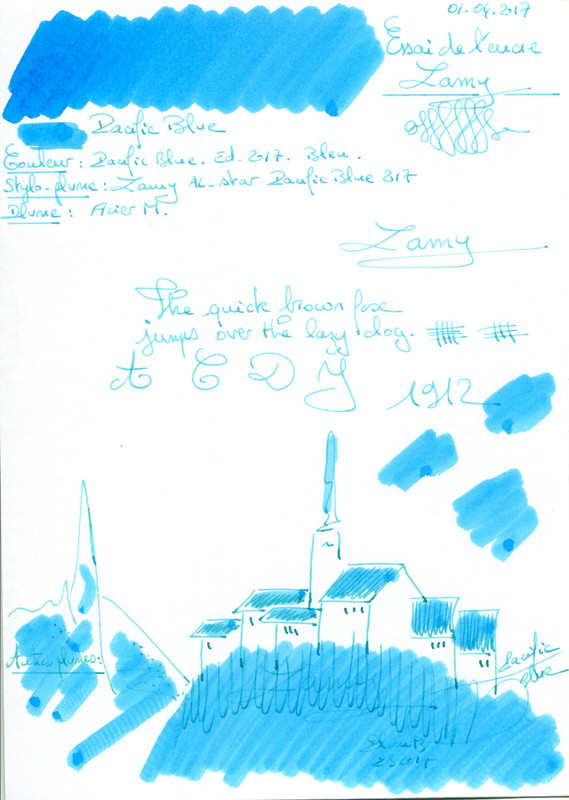 01.04.2017
Essai de l'encre
Lamy
Pacific Blue
Couleur : Pacific Blue. Ed. 2017. Bleu.
Stylo-plume : Lamy AL-star Pacific Blue 2017
Plume : Acier M.
Lamy
The quick brown fox
jumps over the lazy dog.
A C D J
1912
Autres plumes:
Pacific
Blue